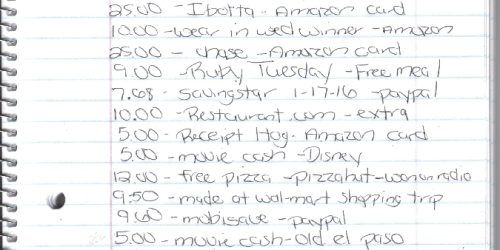 25.00 - Ibotta - Amazon card
10.00 - wear in wed winner - Amazon
25.00 - chase - Amazon card
9.00 - Ruby Tuesday - Free meal
7.68 - Savingstar 1-17-16 - paypal
10.00 - Restaurant.com - extra
5.00 - Receipt Hog - Amazon card
5.00 - movie cash - Disney
12.00 - free pizza - pizzahut - won on radio
9.50 - made at wal-mart shopping trip
9.60 - mobisave - paypal
5.00 - movie cash - old el paso